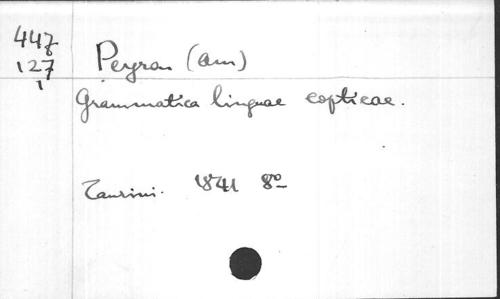 447
127
1
Peyron (Am)
Grammatica linguae copticae.
Taurini. 1841 8º